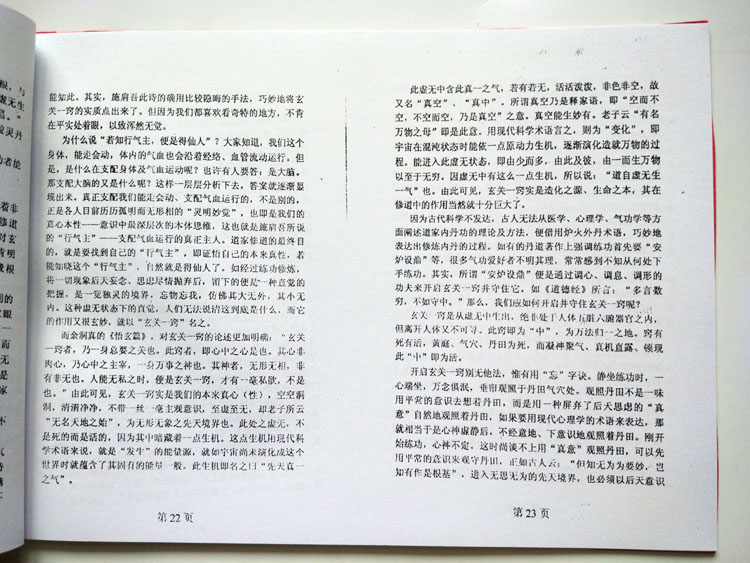 能知此。其实，施肩吾此诗的确用比较隐晦的手法，巧妙地将玄
关一窍的实质点出来了。但因为我们都喜欢看奇特的地方，不肯
在平实处着眼，以致浑然无觉。
为什么说“若知行气主，便是得仙人”？大家知道，我们这个
身体，能走会动，体内的气血也会沿着经络、血管流动运行。但
是，是什么在支配身体及气血运动呢？也许有人要答：是大脑。
那支配大脑的又是什么呢？这样一层层分析下去，答案就逐渐显
现出来。真正支配我们能走会动、支配气血运行的，不是别的，
正是各人目前历历孤明而无形相的“灵明妙觉”，也即是我们的
真心本性——意识中最深层次的本体思维，这也就是施肩吾所说
的“行气主”——支配气血运行的真正主人。道家修道的最终目
的，就是要找到自己的“行气主”，即证悟自己的本来真性，若
能知晓这个“行气主”，自然就是得仙人了。如经过炼功修炼，
将一切现象后天妄念、思虑尽情抛弃后，留下的便是一种直觉的
把握，是一觉独灵的境界，忘物忘我，仿佛其大无外，其小无
内。这种虚无状态下的直觉，人们无法说清这到底是什么，而它
的作用又很玄妙，就以“玄关一窍”名之。
而余洞真的《悟玄篇》，对玄关一窍的论述更加明确：“玄关
一窍者，乃一身总要之关也。此窍者，即心中之心是也。其心非
肉心，乃心中之主宰，一身万事之神也。其神者，无形无相，非
有非无也。人能无私之时，便是玄关一窍，才有一毫私欲，不是
也。”由此可见，玄关一窍实是我们的本来真心（性），空空洞
洞，清清净净，不带一丝一毫主观意识，至虚至无，却老子所云
“无名天地之始”，为无形无象之先天境界也。此处之虚无，不
是死的而是活的，因为其中暗藏着一点生机。这点生机用现代科
学术语来说，就是“发生”的能量源，就如宇宙尚未演化成这个
世界时就蕴含了其固有的能量一般。此生机即名之曰“先天真一
之气”。
第 22 页
此虚无中含此真一之气，若有若无，活活泼泼，非色非空，故
又名“真空”、“真中”。所谓真空乃是释家语，即“空而不
空，不空而空，乃是真空”之意。真空能生妙有。老子云“有名
万物之母”即是此意。用现代科学术语言之，则为“变化”，即
宇宙在混沌状态时能依一点原动力生机，逐渐演化造就万物的过
程。能进入此虚无状态，即由少而多，由此及彼，由一而生万物
以至于无穷。因虚无中有这么一点生机，所以说：“道自虚无生
一气”也。由此可见，玄关一窍实是造化之源、生命之本，其在
修道中的作用当然就十分巨大了。
因为古代科学不发达，古人无法从医学、心理学、气功学等方
面阐述道家内丹功的理论及方法，便借用炉火外丹术语，巧妙地
表达出修炼内丹的过程。如有的丹道著作上强调练功首先要“安
炉设鼎”等，很多气功爱好者不明其理，常常感到不知从何处下
手练功。其实，所谓“安炉设鼎”便是通过调心、调息、调形的
功夫来开启玄关一窍并守住它，如《道德经》所言：“多言数
穷，不如守中。”那么，我们应如何开启并守住玄关一窍呢？
玄关一窍是从虚无中生出，绝非处于人体五脏六腑器官之内，
但离开人体又不可寻。此窍即为“中”，为万法归一之地。窍有
死有活，黄庭、气穴、丹田为死，而凝神聚气、真机直露、顿现
此“中”即为活。
开启玄关一窍别无他法，惟有用“忘”字诀。静坐练功时，一
心端坐，万念俱泯，垂帘观照于丹田气穴处。观照丹田不是一味
用平常的意识去想着丹田，而是用一种屏弃了后天思虑的“真
意”自然地观照着丹田，如果要用现代心理学的术语来表达，那
就相当于是心神虚静后，不经意地、下意识地观照着丹田。刚开
始练功，心神不定，这时尚谈不上用“真意”观照丹田，可以先
用平常的意识来观守丹田，正如古人云：“但知无为为要妙，岂
知有作是根基”，进入无思无为的先天境界，也必须以后天意识
第 23 页